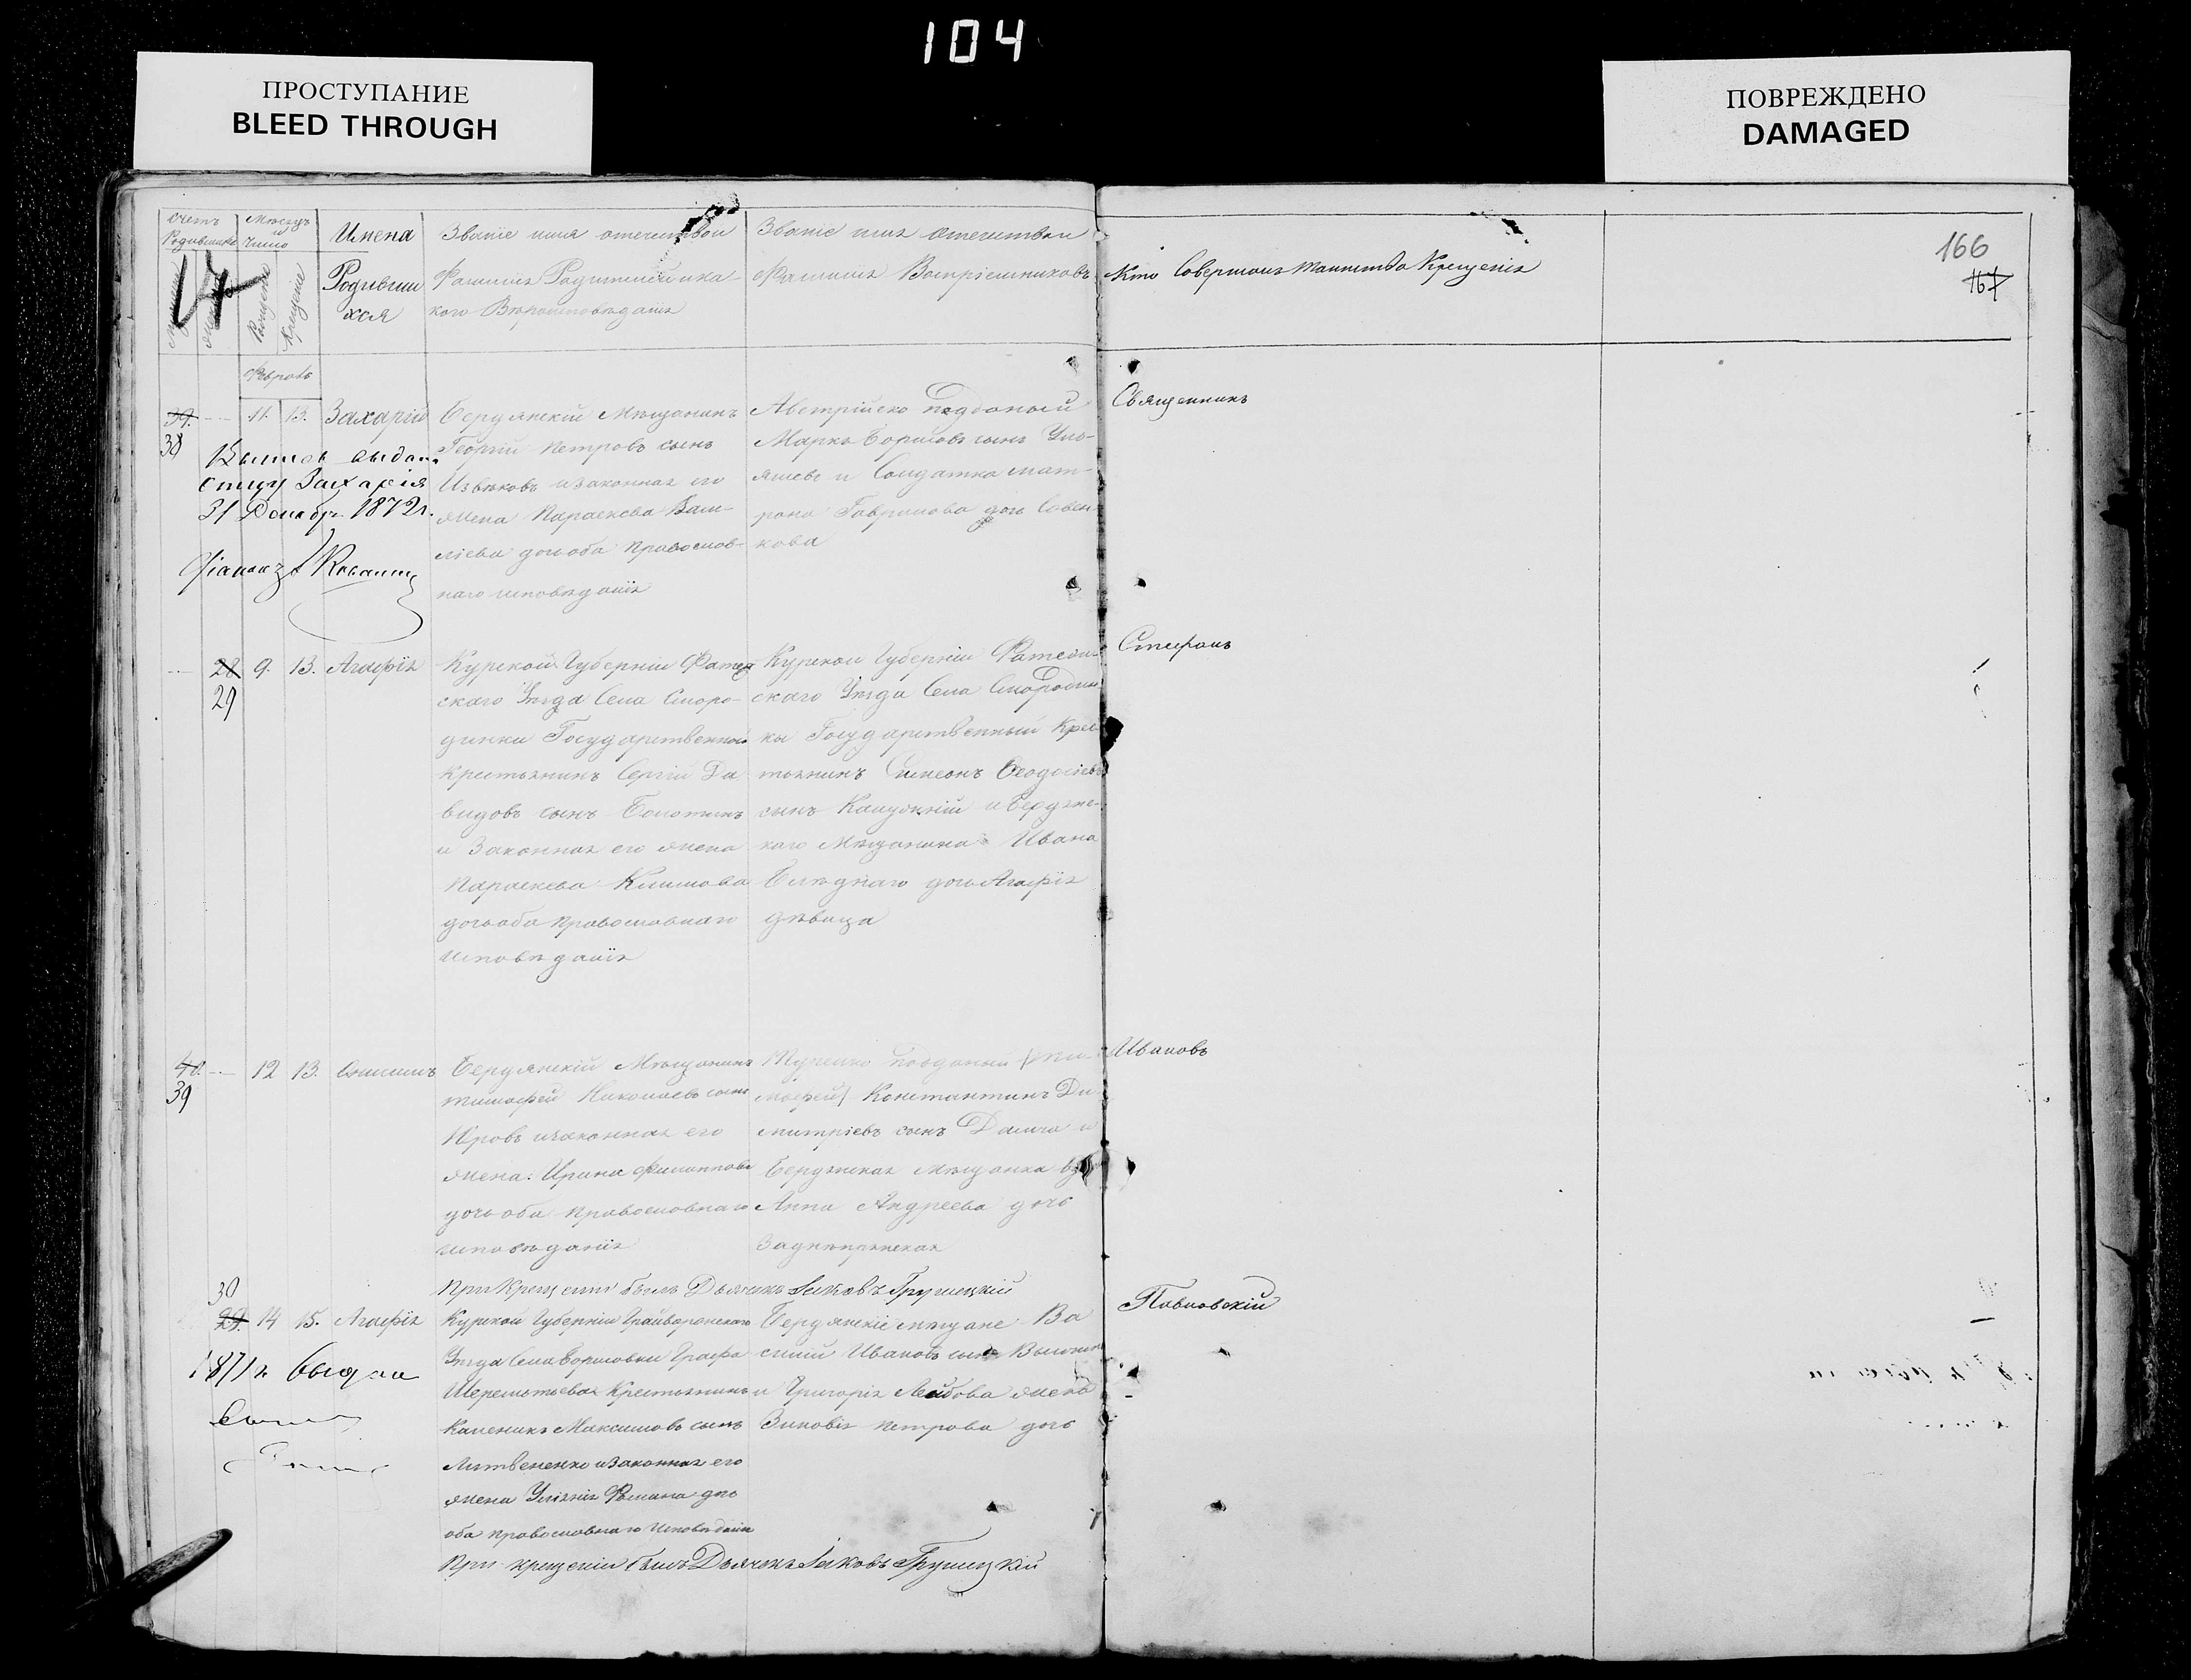 104
ПРОСТУПАНИЕ
BLEED THROUGH
ПОВРЕЖДЕНО
DAMAGED
166
167
счетъ
Родившихся
Мѣсяцъ
и
Число
Имена
Родивши
хся
Званіе имя отечество и
Фамилія Родителей и ка-
кого Вѣроисповѣданія
Званіе имя отечество и
Фамилія Воспріемниковъ
Кто Совершалъ таинство Крещенія
17
Рожденія
Крещенія
Февраль
39.
38
11. 13. Захарій
Бердянскій Мѣщанинъ
Георгій Петровъ сынъ
Извѣковъ и законная его
жена Параскева Васи-
лієва дочь оба православ-
наго исповѣданія
Австрійско подданый
Марко Борисовъ сынъ
и Солдатка Мат-
рона Гаврилова дочь Совен-
кова
Священникъ
выдана
Захарія
31 Декабр 1872 г.
28
29
9. 13. Агафія
Курской Губерніи Фатеж
скаго Уѣзда Села Сморо-
динки Государственный
крестьянинъ Сергій Да
видовъ сынъ Болотинъ
и Законная его жена
Параскева Климова
дочь оба православнаго
исповѣданія
Курской Губерніи Фатеж
скаго Уѣзда Села Смородин
ки Государственный Крес
тьянинъ Симеонъ Ѳеодосіевъ
сынъ и Бердянс-
каго Мѣщанина Ивана
Блѣднаго дочь Агафія
дѣвица
Стефанъ
40.
39
12 13. Онисимъ
Бердянскій Мѣщанинъ
Тимофей Николаевъ сынъ
и законная его
жена Ирина Филиппова
дочь оба православнаго
исповѣданія
Турецко подданый
Константинъ Ди
митріевъ сынъ и
Бердянская Мѣщанка
Анна Андреева дочь
Заднѣпрянская
Ивановъ
При Крещеніи былъ Дьячекъ Іаковъ Грушецкій
30
29. 14 15. Агафія
Курской Губерніи Грайворонскаго
Уѣзда Села Борисовки Графа
Шереметьева Крестьянинъ
Каленикъ Максимовъ сынъ
Литвененко и Законная его
жена Уліянія дочь
оба православнаго Исповѣданія
Бердянскіе мѣщане Ва
силій Ивановъ сынъ
и Григорія жена
Зиновія Петрова дочь
Павловскій
1871 г. выдана
При крещеніи былъ Дьячекъ Іаковъ Грушецкій